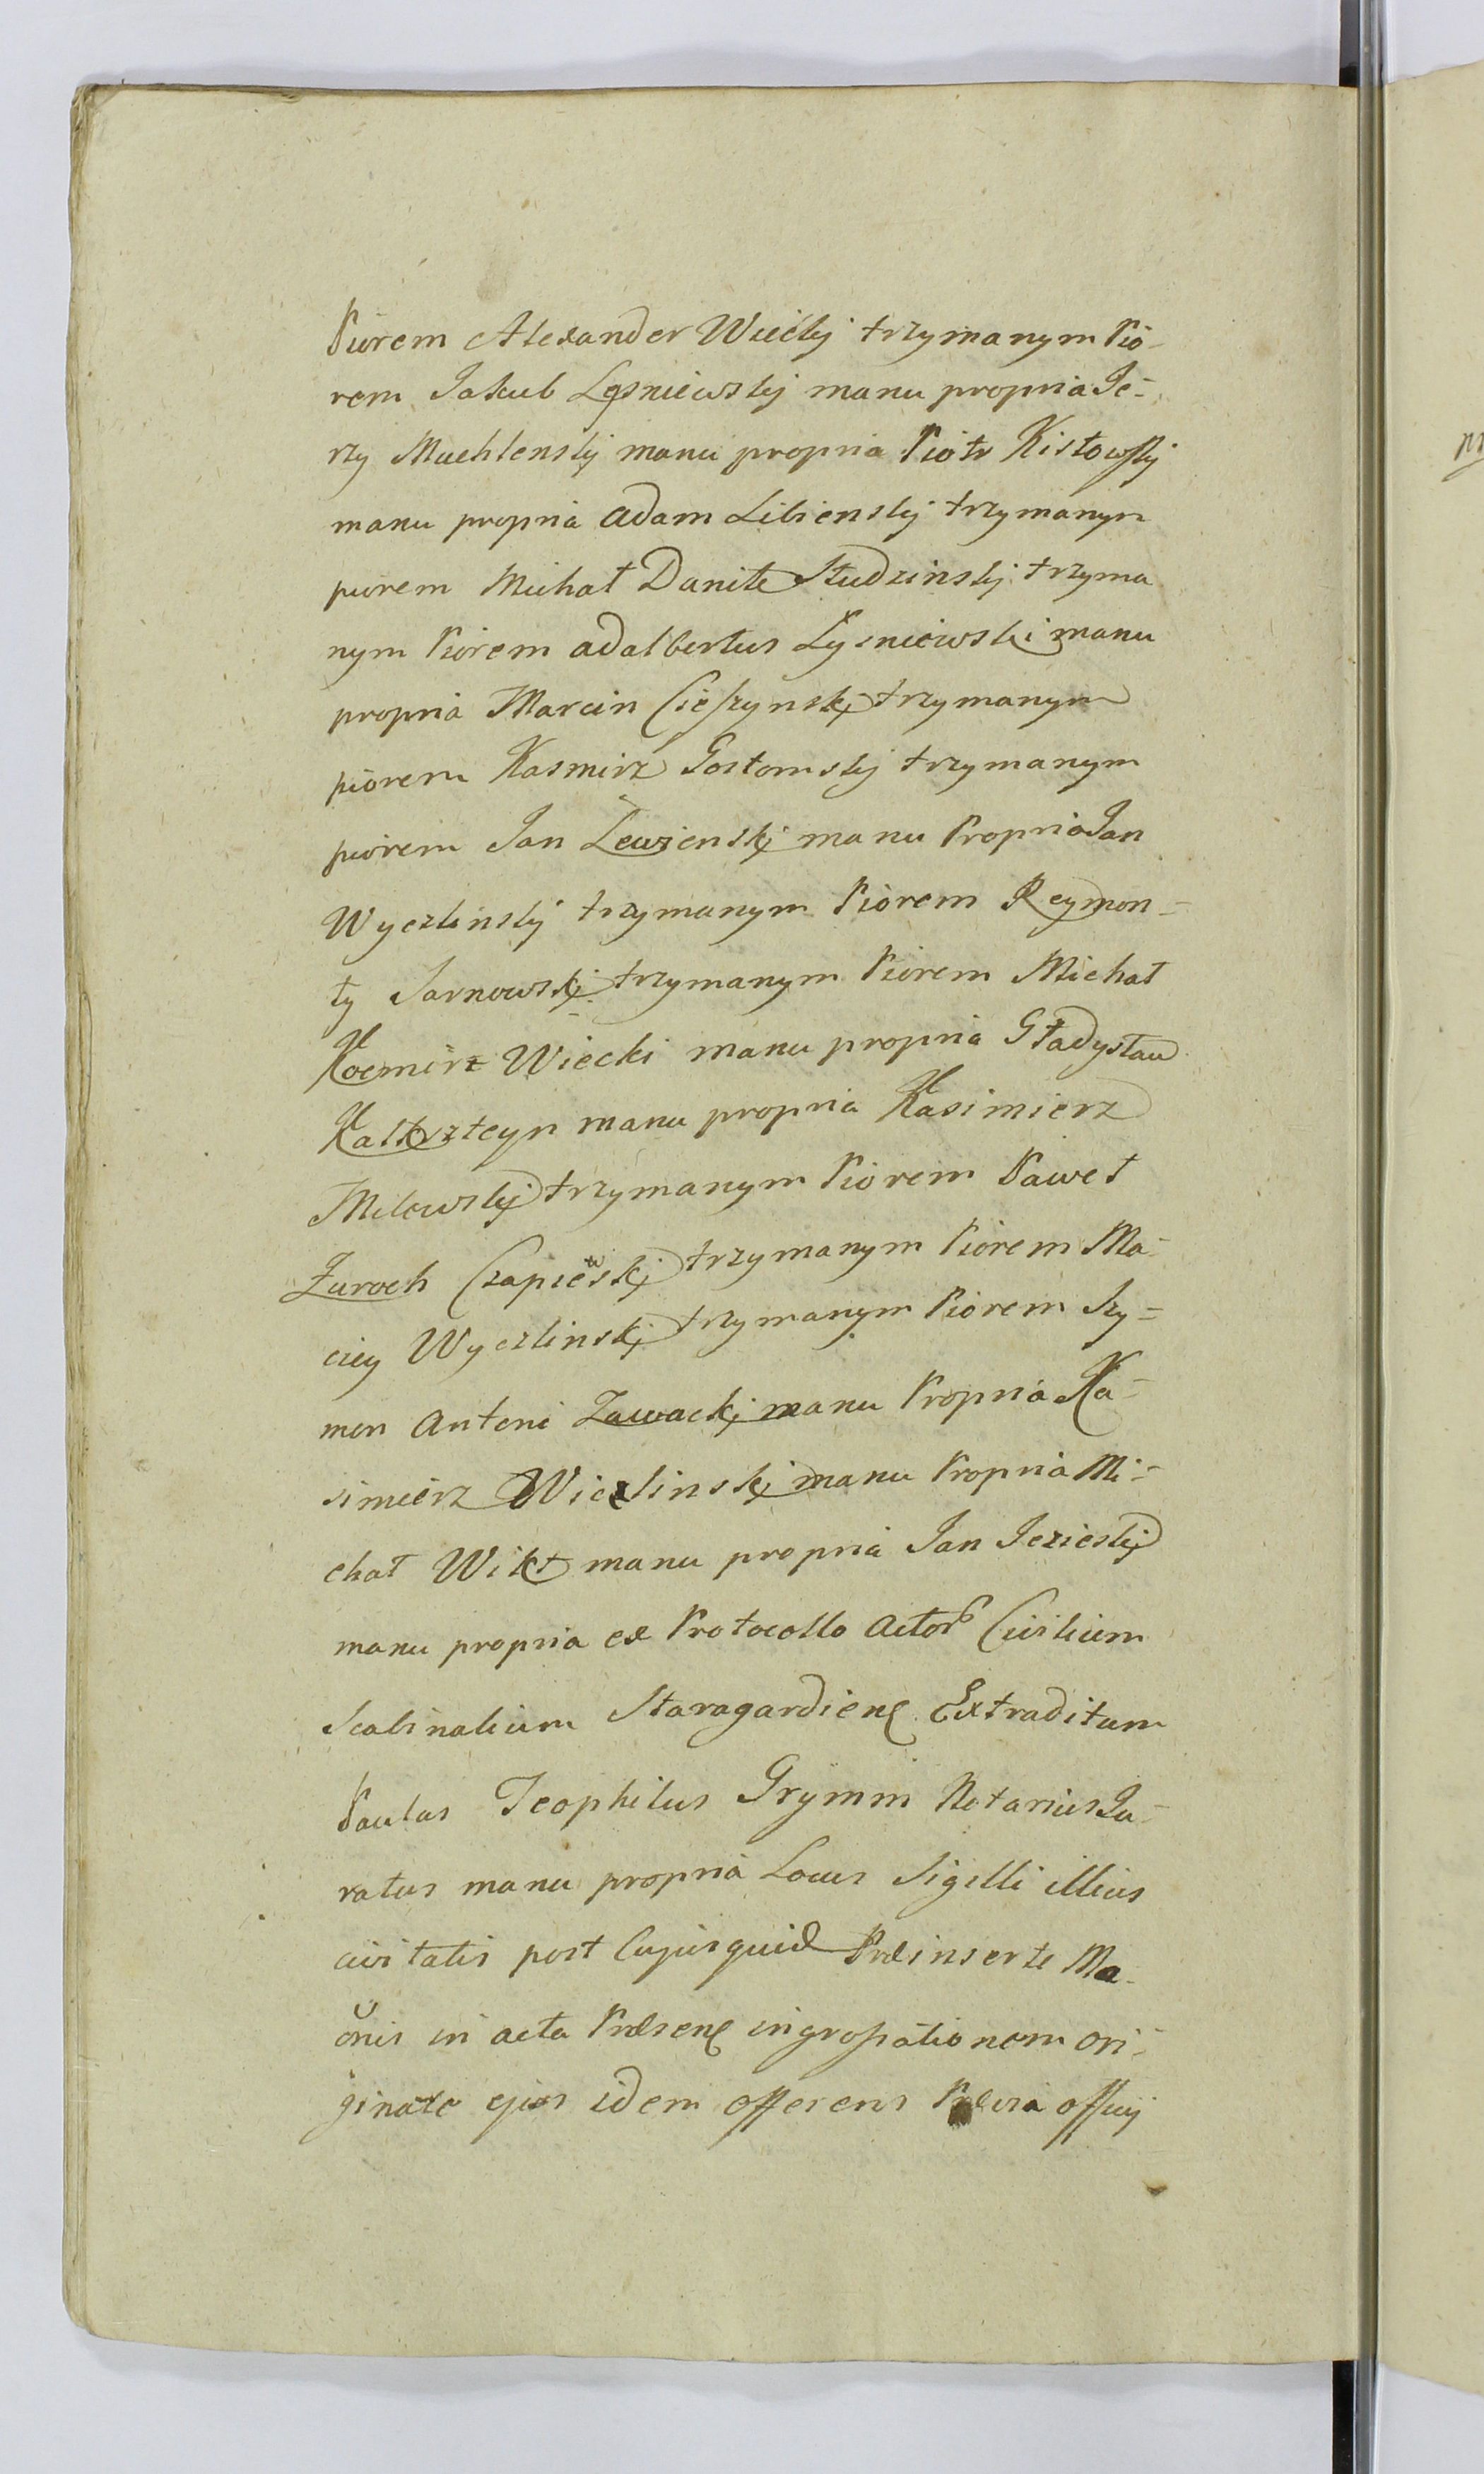 Piórem Alexander Wiecky trzymanym Pió-
rem Jakub Lęsniewsky manu propria Je-
rzy Muchlensky manu propria Piotr Kistowsky
manu propria Adam Libiensky trzymanym
piorem Michał Daniłe Studzinsky trzyma
nym Piorem Adalbertus Lysniewski manu
propria Marcin Cieszynskj trzymanym
piórem Kasmirz Gostomsky trzymanym
piorem Jan Lewienskj manu Propria Jan
Wyczlinsky trzymanym Piórem Reymon-
ty Jarnowskj trzymanym Piorem Michał
Kocmirz Wiecki manu propria Gładysław
Kalkszteyn manu propria Kasimierz
Milewskj trzymanym Piorem Paweł
Zuroch Czapiewskj trzymanym Piorem Ma-
ciey Wyczlinskj trzymanym Piorem Szy-
mon Antoni Zawackj manu Propria Ka-
simierz Wiczlinskj manu Propria Mi-
chał Wikt manu propria Jan Jezieskj
manu propria ex Protocollo Actor Civilium
Scabinalium Staragardien Extraditum
Paulus Teophilus Grymm Notarius Ju-
ratus manu propria Locus Sigilli illius
civitatis post Cujusquid Præinserte Ma-
onis in acta Præsen ingrossationem ori-
ginale ejus idem offerens Prævia officij
pr